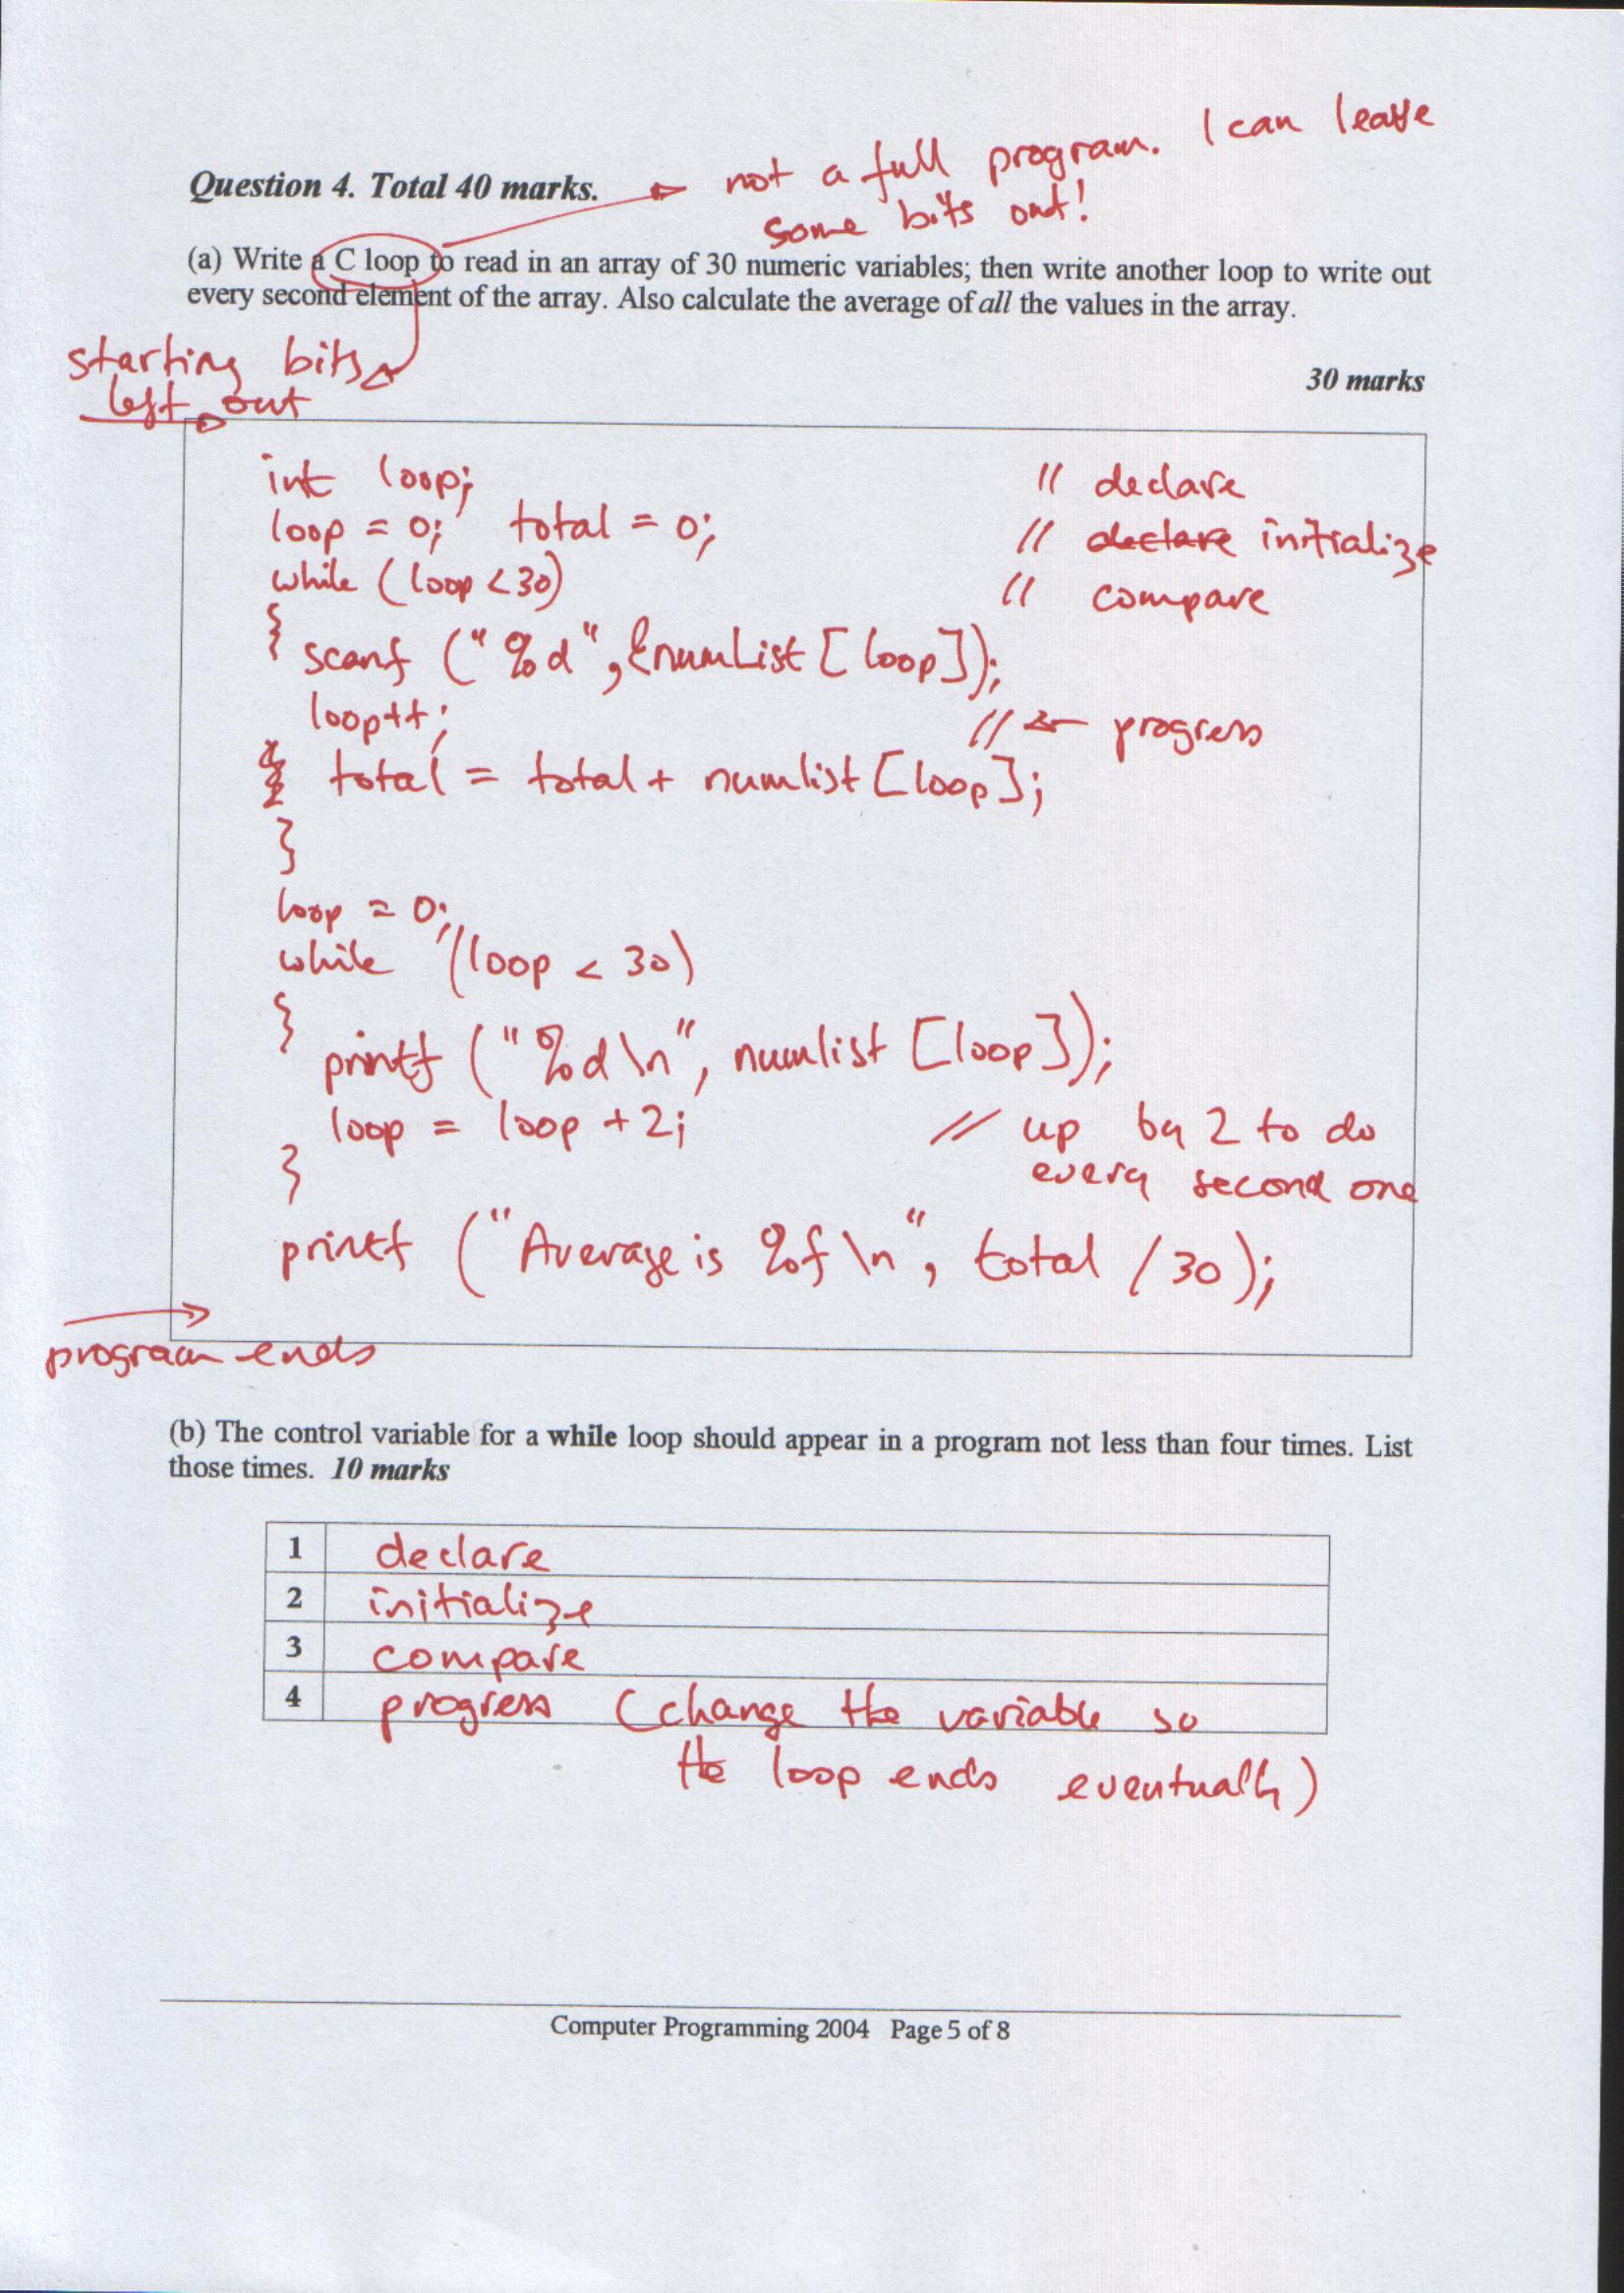 not a full program. I can leave
Question 4. Total 40 marks.
some bits out!
(a) Write a C loop to read in an array of 30 numeric variables; then write another loop to write out
every second element of the array. Also calculate the average of all the values in the array.
starting bits
left out
30 marks
int loop; // declare
loop = 0; total = 0; // declare initialize
while (loop <30) // compare
{ scanf ("%d", &numList [loop]);
loop++; // ← progress
total = total + numlist [loop];
}
loop = 0;
while (loop < 30)
{
printf ("%d\n", numlist [loop]);
loop = loop +2; // up by 2 to do
} every second one
printf ("Average is %f \n", total /30);
program ends
(b) The control variable for a while loop should appear in a program not less than four times. List
those times. 10 marks
1 declare
2 initialize
3 compare
4 progress (change the variable so
the loop ends eventually)
Computer Programming 2004 Page 5 of 8